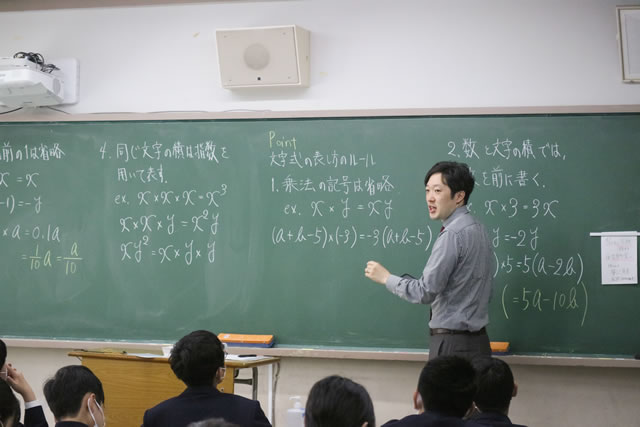 前の1は省略
x = x
-1) = -y
x a = 0.1a
= 1/10 a = a/10
4. 同じ文字の積は指数を
用いて表す。
ex. x × x × x = x³
x × x × y = x²y
xy² = x × y × y
Point
文字式の表し方のルール
1. 乗法の記号は省略
ex. x × y = xy
(a+b-5)×(-3) = -3(a+b-5)
2. 数と文字の積では,
を前に書く.
x × 3 = 3x
y = -2y
) × 5 = 5(a-2b)
(= 5a-10b)